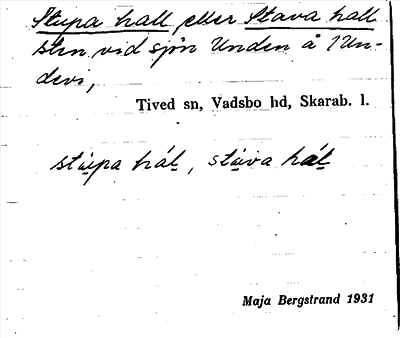 Stupa hall eller Stava hall
sten vid sjön Unden å Un-
devi,
Tived sn, Vadsbo hd, Skarab. l.
stupa hál, stáva hál
Maja Bergstrand 1931